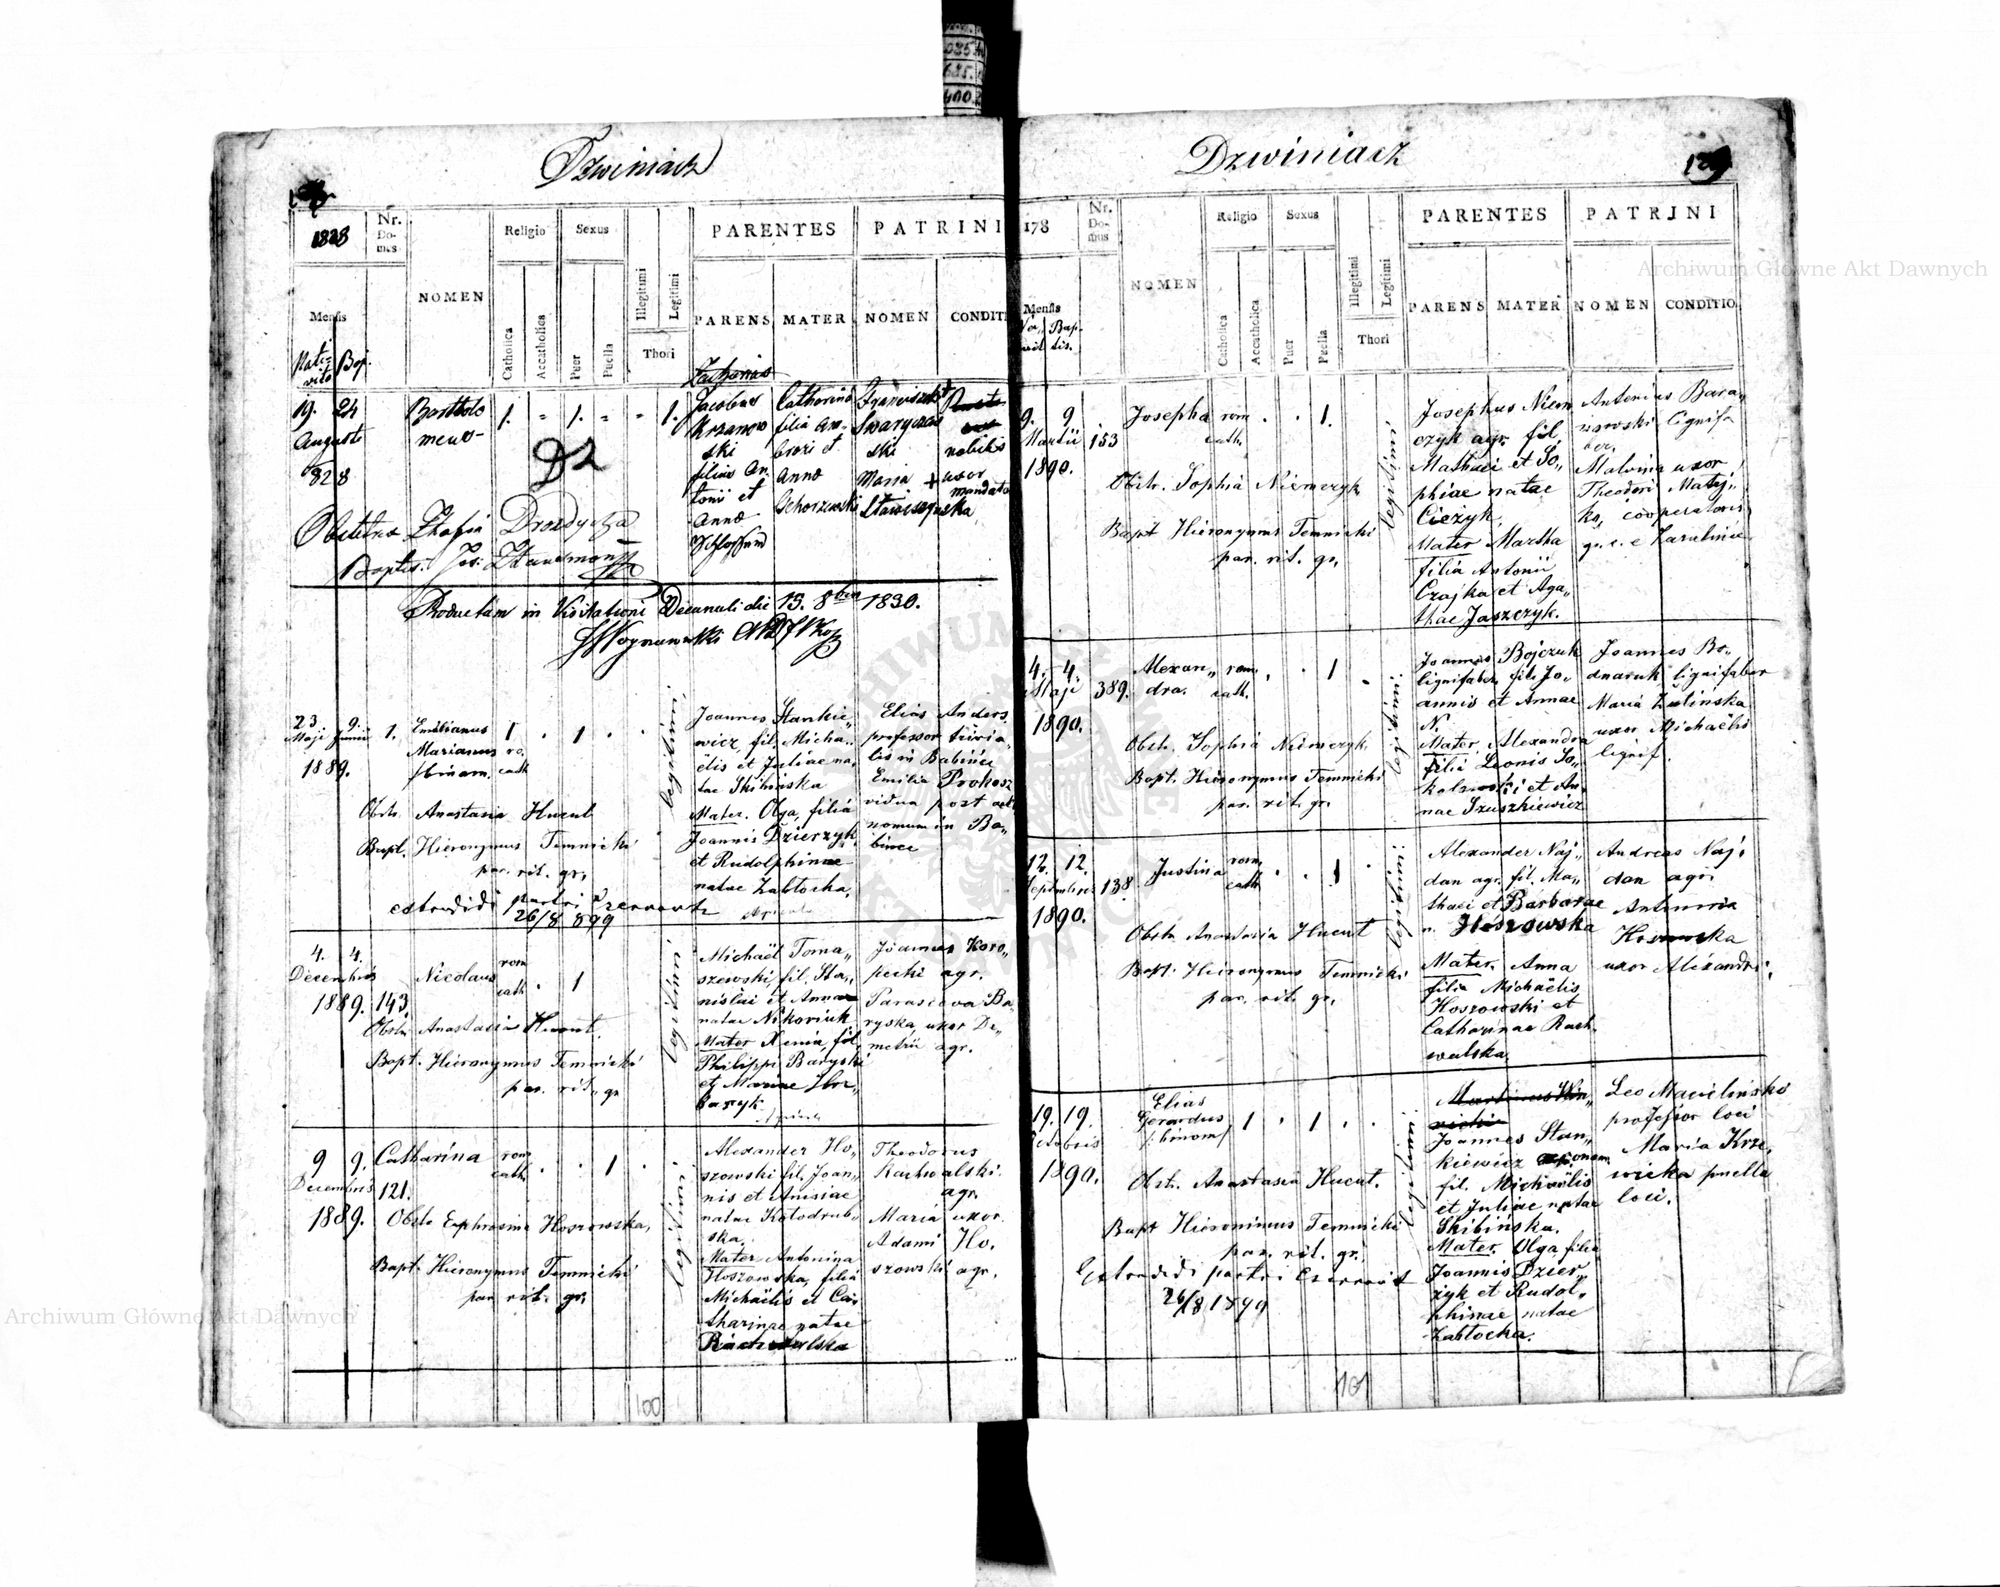 Dzwiniacz
1828
Nr.
Do-
mus
NOMEN
Religio
Sexus
PARENTES
PATRINI
Mensis
Catholica
Accatholica
Puer
Puella
Illegitimi
Legitimi
Thori
PARENS
MATER
NOMEN
CONDITI
Nati-
vita
Bap.
19. 24
Augusti
828
Bartholo
meus-
1.
1.
1.
Jacobus
Krzanow
ski
filius An
tonii et
Anna
Catharina
filia Am-
brozi et
Anna
Franciszek
Swaryczew
ski
Maria +
nobilis
uxor
mandata
Obstetrix Zhofia Drozdycza
Baptis. Jos.
Productum in Visitatione Decanali die 15. 8bris 1830.
23. 9.
Maji Junii
1889.
1.
Emilianus
Marianus
/binom.
ro.
cath
1
legitimi
Joannes Stankie„
wicz, fil. Micha„
ëlis et Juliae na„
tae Skibińska
Mater. Olga, filia
Joannis Dzierzyk
et Rudolphinae
natae Zabłocka.
Elias Anders.
professor trivia„
lis in Babińce
Emilia Prokosz
vidua post oeco
nomum in Ba„
bince
Obstr. Anastasia Hucul
Bapt. Hieronymus Temnicki
par. rit. gr.
extradidi partri Czernowitz
26/8 899
4. 4.
Decembris
1889.
143
Nicolaus
rom
cath
1
legitimi
Michaël Toma„
szewski, fil. Sta„
nislai et Annae
natae Nikoriuk
Mater Xenia, fil.
Philippi Baryski
et Mariae Hor„
baczyk
Joannes Koro„
pecki agr.
Parasceva Ba„
ryska, uxor De„
metrii agr.
Obstr. Anastasia Hucul.
Bapt. Hieronymus Temnicki
par. rit. gr
9 9.
Decembris
1889.
121.
Catharina
rom
cath
1
legitimi
Alexander Ho„
szowski fil. Joan„
nis et Anisiae
natae Kołodrub„
ska.
Mater Antonina
Hoszowska, filia
Michaëlis et Ca„
tharinae natae
Rachwalska
Theodorus
Rachwalski
agr.
Maria uxor
Adami Ho„
szowski agr.
Obstr. Euphrosina Hoszowska,
Bapt. Hieronymus Temnicki
par. rit. gr.
100
Dzwiniacz
129
178
Nr.
Do-
mus
NOMEN
Religio
Sexus
PARENTES
PATRINI
Mensis
Bap-
tis.
Catholica
Accatholica
Puer
Puella
Illegitimi
Legitimi
Thori
PARENS
MATER
NOMEN
CONDITIO
9. 9
Martii
1890.
153
Josepha
rom
cath.
1.
legitimi
Josephus Niem
czyk agr. fil.
Mathaei et So„
phiae natae
Ciezyk.
Mater Martha
filia Antonii
Czajka et Aga„
thae Jaszczyk.
Antonius Bara„
nowski lignifa
ber.
Malvina uxor
Theodori Matij„
ko, cooperatoris
gr. r. e Zarulinie
Obstr. Sophia Niemczyk
Bapt Hieronymus Temnicki
par. rit. gr.
4. 4.
Maji
1890.
389.
Alexan„
dra.
rom.
cath.
1
legitimi
Joannes Bojczuk
lignifaber, fil. Jo„
annis et Annae
N.
Mater. Alexandra
filia Leonis So„
kolowski et An„
nae Szuszkiewicz
Joannes Bo„
dnaruk lignifaber
Maria Zulinska
uxor Michaëlis
lignif.
Obstr. Sophia Niemczyk.
Bapt. Hieronymus Temnicki
par. rit. gr.
12. 12.
Septembris
1890.
138
Justina
rom
cath
1
legitimi
Alexander Naj„
dan agr. fil. Ma„
thaei et Barbarae
n. Hoszowska
Mater. Anna
filia Michaëlis
Hoszowski et
Catharinae Rach„
walska.
Andreas Naj„
dan agr.
Antonina
Hoszowska
uxor Alexandri.
Obstr. Anastasia Hucul
Bapt. Hieronymus Temnicki
par. rit. gr.
19. 19.
Octobris
1890.
Elias
Gerardus
/:binom/
1
1
legitimi
Joannes Stan„
kiewicz
fil. Michaëlis
et Juliae natae
Skibińska.
Mater. Olga filia
Joannis Dzier„
zyk et Rudol„
phinae natae
Zabłocka.
Leo Macieliński
professor loci
Maria Krze„
wicka puella
loci.
Obstr. Anastasia Hucul.
Bapt Hieronimus Temnicki
par. rit. gr.
Extradidi partri Czernowit
26/8 1899
101
Archiwum Główne Akt Dawnych
Archiwum Główne Akt Dawnych